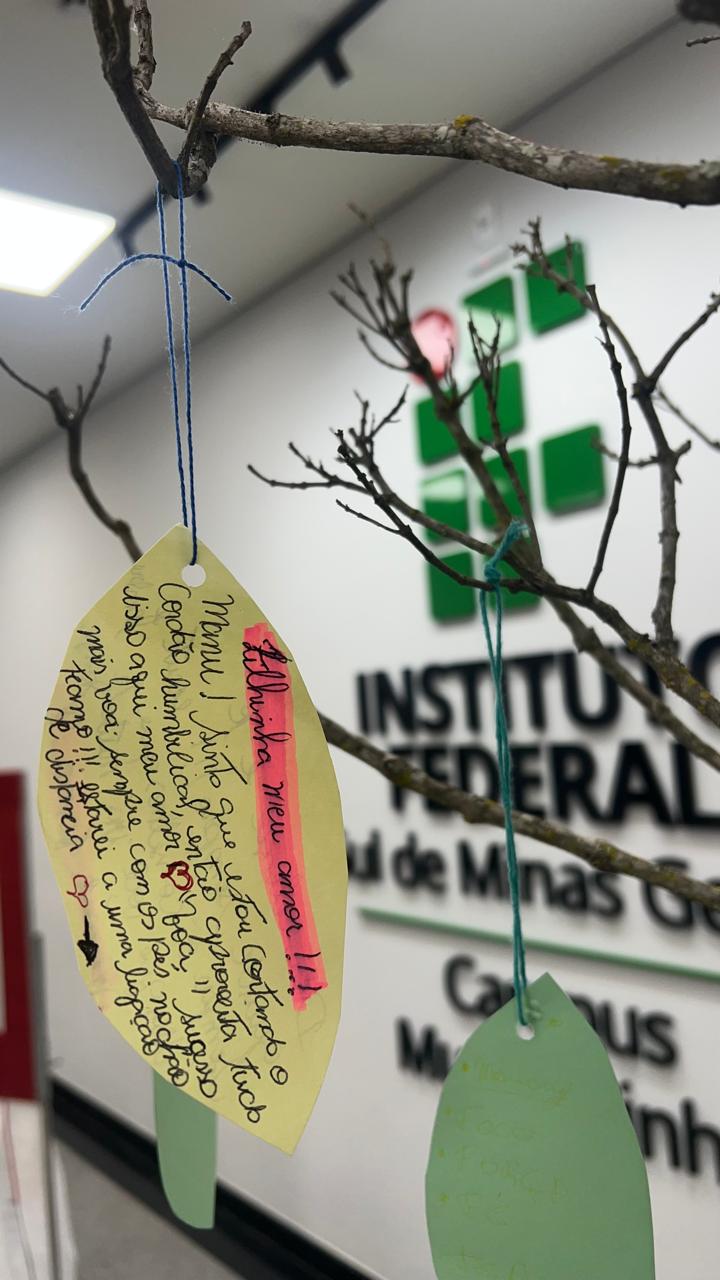 Filhinha meu amor !!!
Manu! Sinto que estou Cortando o
Cordão humbilical, então aproveita tudo
disso aqui meu amor voa, sucesso
mais voa sempre com os pés no chão
teamo!!! estarei a uma ligação
de distancia
INSTITUTO
FEDERAL
Sul de Minas Ge
Campus
Mu inh
Foco
FORÇA
Fé